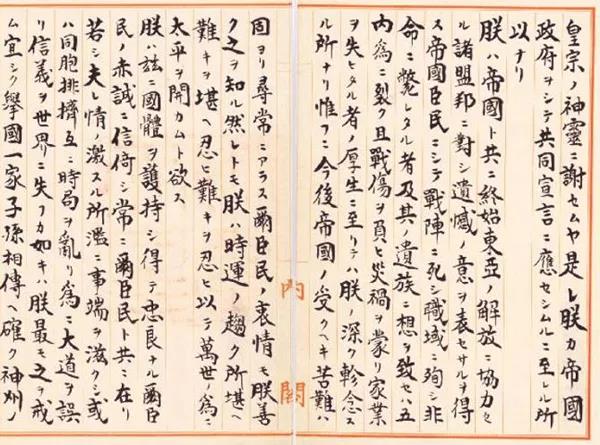 皇宗ノ神靈ニ謝セムヤ是レ朕カ帝國
政府ヲシテ共同宣言ニ應セシムルニ至レル所
以ナリ
朕ハ帝國ト共ニ終始東亞ノ解放ニ協力セ
ル諸盟邦ニ對シ遺憾ノ意ヲ表セサルヲ得
ス帝國臣民ニシテ戰陣ニ死シ職域ニ殉シ非
命ニ斃レタル者及其ノ遺族ニ想ヲ致セハ五
內為ニ裂ク且戰傷ヲ負ヒ災禍ヲ蒙リ家業
ヲ失ヒタル者ノ厚生ニ至リテハ朕ノ深ク軫念ス
ル所ナリ惟フニ今後帝國ノ受クヘキ苦難ハ
內閣
固ヨリ尋常ニアラス爾臣民ノ衷情モ朕善
ク之ヲ知ル然レトモ朕ハ時運ノ趨ク所堪ヘ
難キヲ堪ヘ忍ヒ難キヲ忍ヒ以テ萬世ノ為ニ
太平ヲ開カムト欲ス
朕ハ茲ニ國體ヲ護持シ得テ忠良ナル爾臣
民ノ赤誠ニ信倚シ常ニ爾臣民ト共ニ在リ
若シ夫レ情ノ激スル所濫ニ事端ヲ滋クシ或
ハ同胞排擠互ニ時局ヲ亂リ為ニ大道ヲ誤
リ信義ヲ世界ニ失フカ如キハ朕最モ之ヲ戒
ム宜シク擧國一家子孫相傳ヘ確ク神州ノ